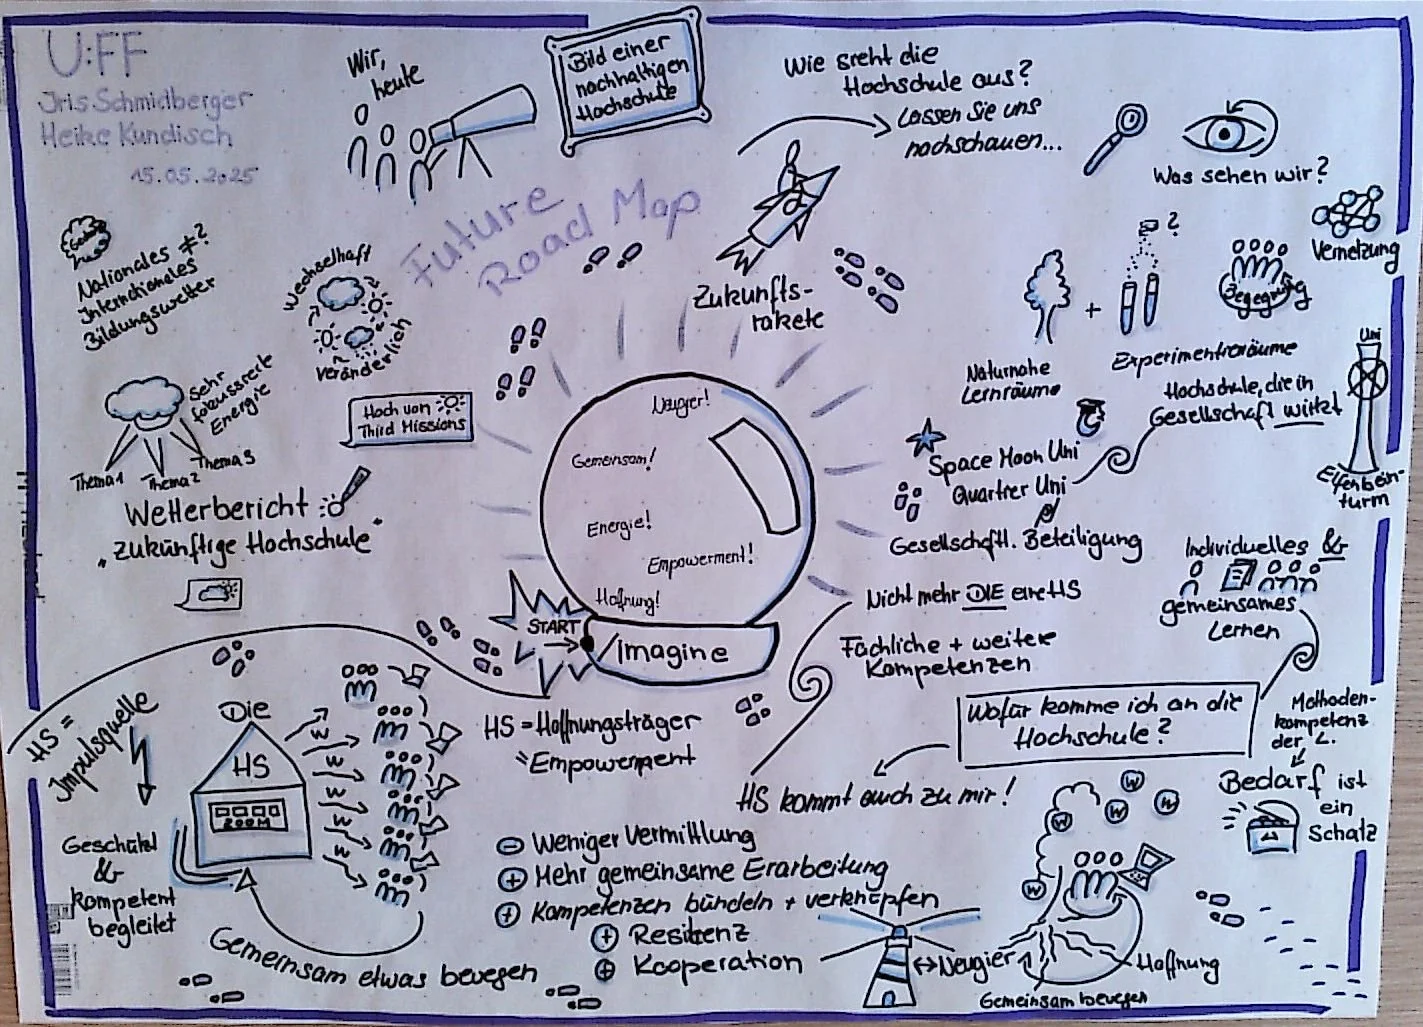 U:FF
Iris Schmidberger
Heike Kundisch
15.05.2025
Wir,
heute
Bild einer
nachhaltigen
Hochschule
Wie sieht die
Hochschule aus?
Lassen Sie uns
nachschauen...
Was sehen wir?
Future
Road Map
Zukunfts-
rakete
Nationales ≠?
Internationales
Bildungswetter
Wechselhaft
Veränderlich
Sehr
fokussierte
Energie
Thema 1
Thema 2
Thema 3
Hoch von
Third Missions
Wetterbericht
"Zukünftige Hochschule"
Vernetzung
?
Begegnung
+
Naturnahe
Lernräume
Experimentierräume
Hochschule, die in
Gesellschaft wirkt
Uni
Elfenbein-
turm
Space Moon Uni
Quartier Uni
Gesellschaftl. Beteiligung
Neugier!
Gemeinsam!
Energie!
Empowerment!
Hoffnung!
START
Imagine
Nicht mehr DIE eine HS
Fachliche + weitere
Kompetenzen
Individuelles &
gemeinsames
Lernen
Wofür komme ich an die
Hochschule?
HS kommt auch zu mir!
Methoden-
kompetenz
der L.
Bedarf ist
ein
Schatz
HS =
Impulsquelle
Die
HS
ZOOM
W
W
W
W
W
W
Geschützt
&
kompetent
begleitet
Gemeinsam etwas bewegen
HS = Hoffnungsträger
= Empowerment
- Weniger Vermittlung
+ Mehr gemeinsame Erarbeitung
+ Kompetenzen bündeln + verknüpfen
+ Resilienz
+ Kooperation
W
W
W
W
W
↔ Neugier
Hoffnung
Gemeinsam bewegen